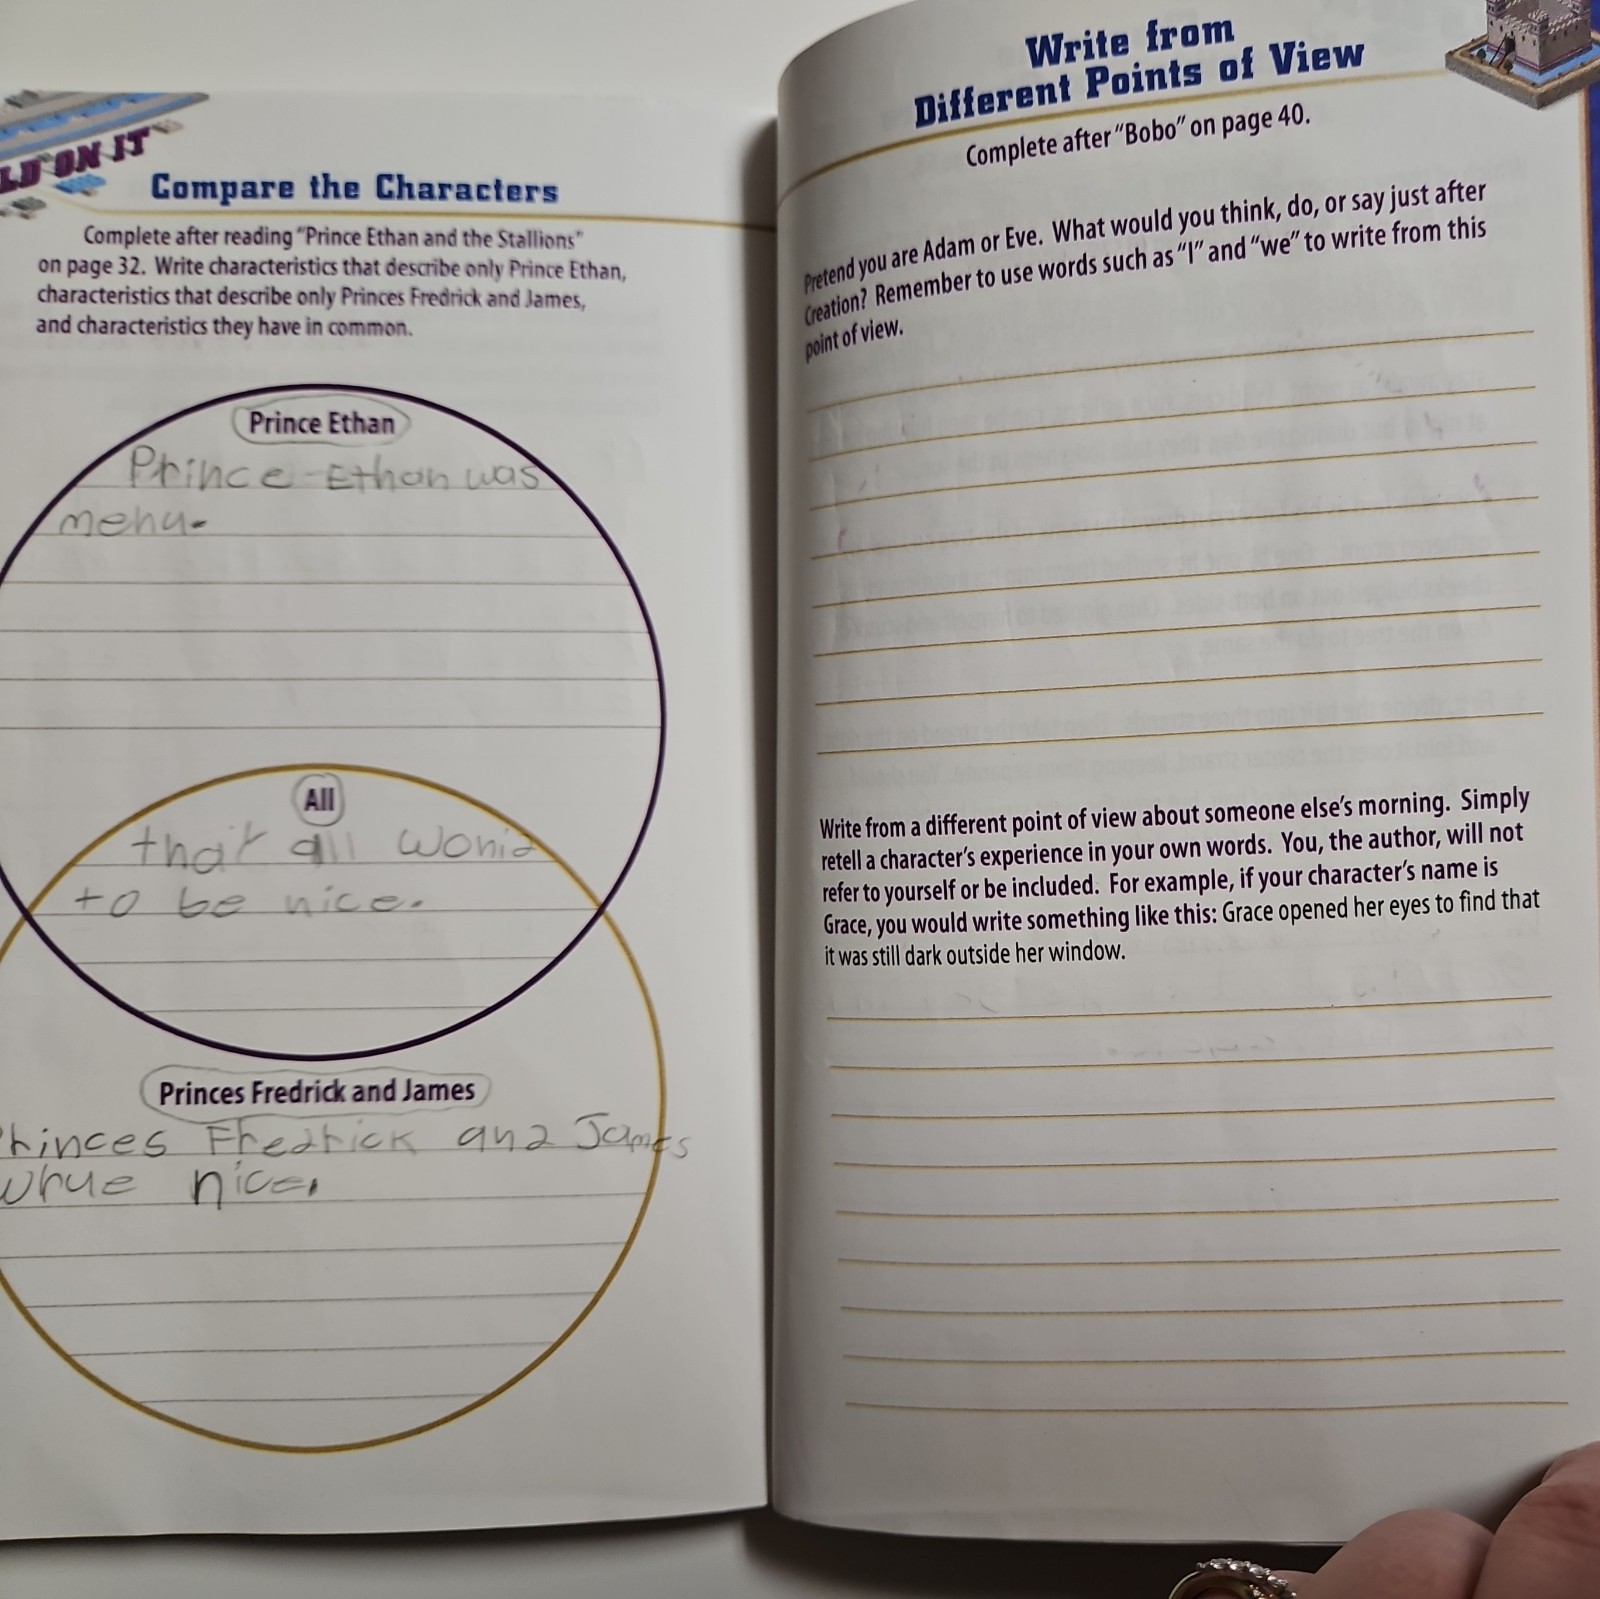 LD ON IT
Compare the Characters
Complete after reading "Prince Ethan and the Stallions"
on page 32. Write characteristics that describe only Prince Ethan,
characteristics that describe only Princes Fredrick and James,
and characteristics they have in common.
Prince Ethan
Prince-Ethan was
All
that all
to be nice.
Princes Fredrick and James
rinces Fredrick and James
nice.
Write from
Different Points of View
Complete after "Bobo" on page 40.
Pretend you are Adam or Eve. What would you think, do, or say just after
Creation? Remember to use words such as "I" and "we" to write from this
point of view.
Write from a different point of view about someone else's morning. Simply
retell a character's experience in your own words. You, the author, will not
refer to yourself or be included. For example, if your character's name is
Grace, you would write something like this: Grace opened her eyes to find that
it was still dark outside her window.